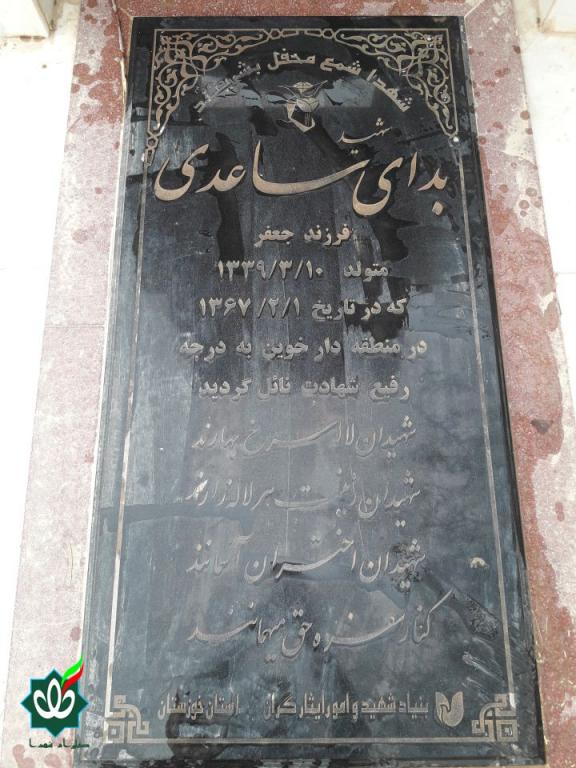 شهدا شمع محفل بشریتند
شهید
بدای ساعدی
فرزند جعفر
متولد ۱۳۳۹/۳/۱۰
که در تاریخ ۱۳۶۷/۲/۱
در منطقه دار خوین به درجه
رفیع شهادت نائل گردید
شهیدان لاله سرخ بهارند
شهیدان زینت هر لاله زارند
شهیدان اختران آسمانند
کنار سفره حق میهمانند
بنیاد شهید و امور ایثارگران استان خوزستان